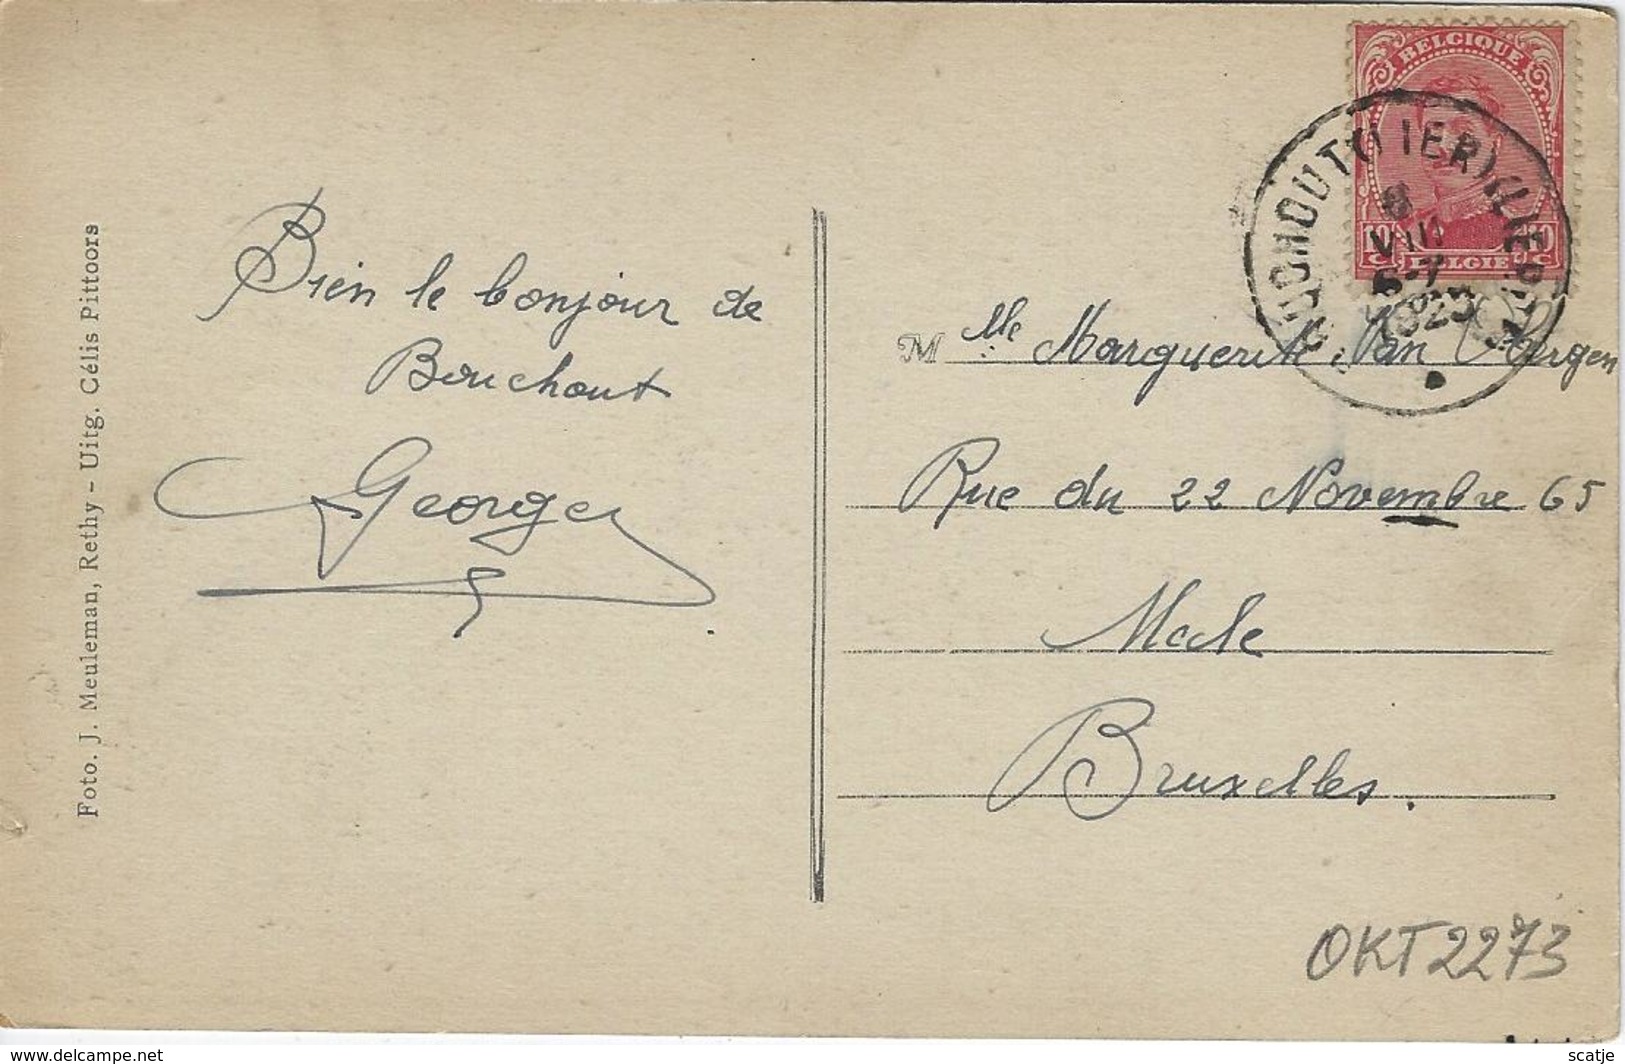 Foto. J. Meuleman, Rethy - Uitg. Célis Pittoors
Bien le bonjour de
Bouchout
Georges
BELGIQUE
10 C BELGIE 10 C
BOUCHOUT (LIER) (LIERRE)
8
VIII
1923
M lle Marguerite Van
Rue du 22 Novembre 65
Bruxelles.
OKT2273
delcampe.net
scatje